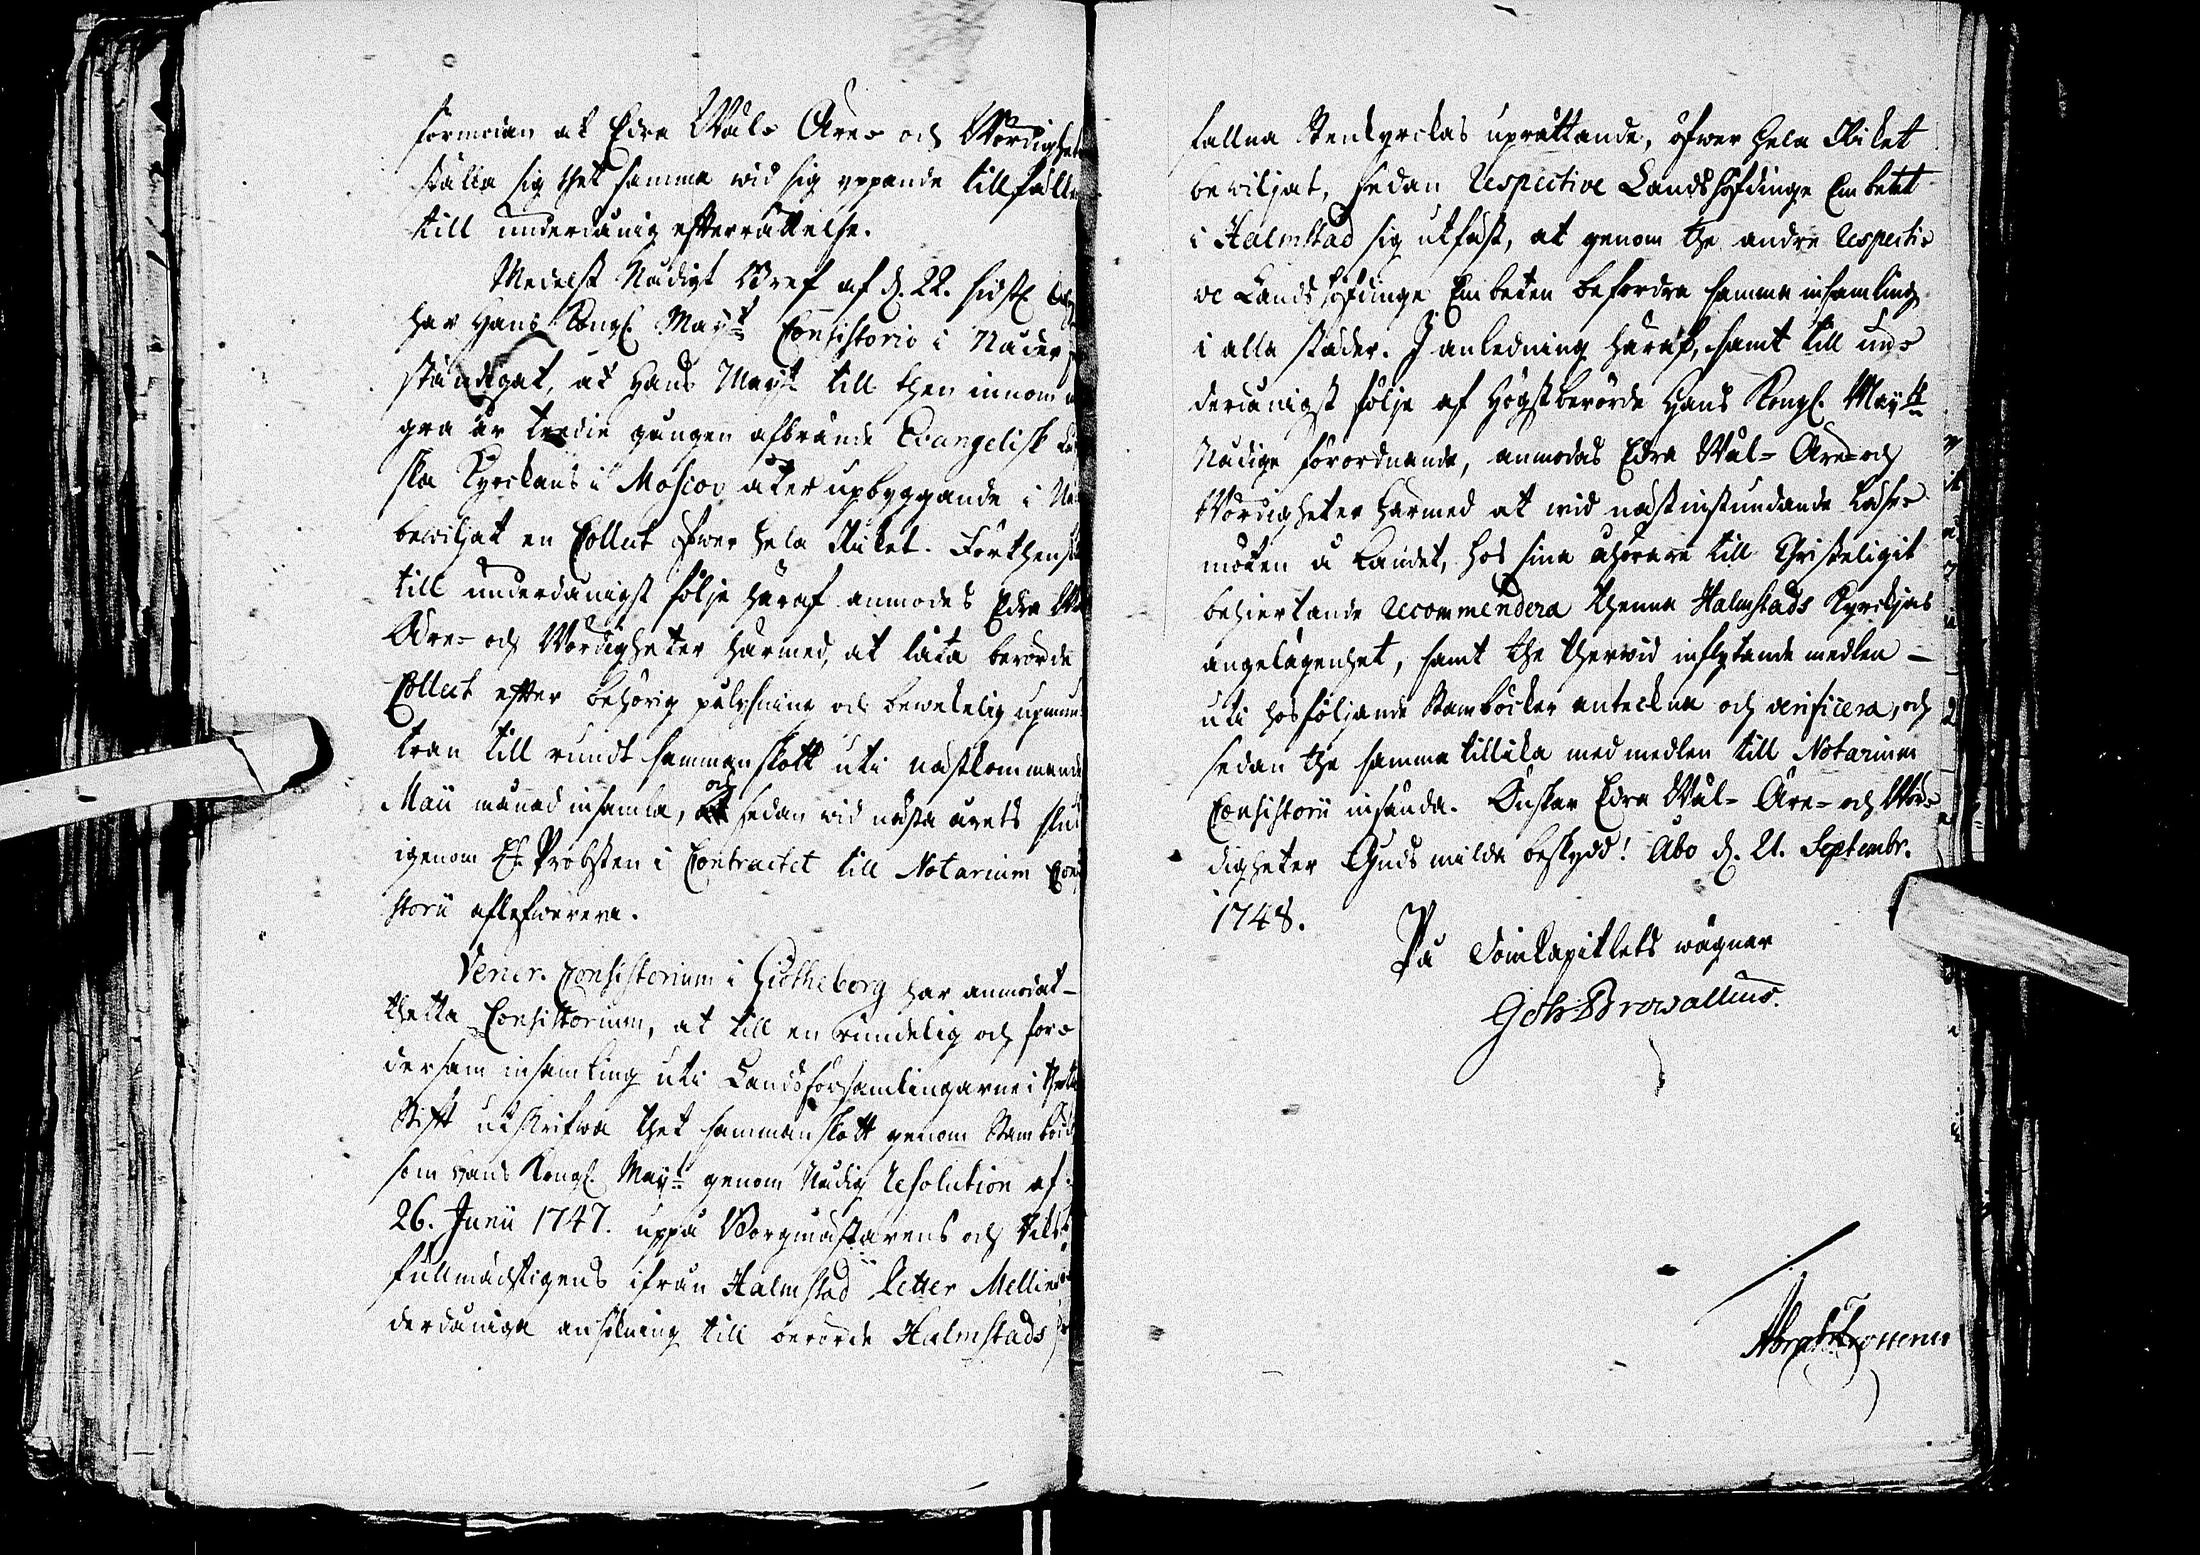 förmodan at Edra Wäl- Äre- och Wördighet
ställa sig thet samma wid sig yppande tillfälle
till underdånig efterrättelse.
Medelst Nådigt Bref af d. 22. sidstl.
har Hans Kongl. Mayt Consistorio i Nåder
ständigat, at Hans Mayt till then innom
gra år tredie gången afbrände Evangelisk Lu
ska Kyrckans i Moscov åter upbyggande i Nå
bewiljat en Collect öfwer hela Riket. Förthens
till underdånigst följe häraf anmodes Edra Wäl
Äre- och Wördigheter härmed, at låta berörde
Collect efter behörig pålysning och bewekelig upmun
tran till rundt sammanskott uti nästkommande
Maii månad insamla, och sedan wid nästa årets slut
igenom Hr Probsten i Contractet till Notarium Consi
storii aflefwerera.
Vener. Consistorium i Giötheborg har anmodat
thetta Consistorium, at till en rundelig och for-
dersam insamling uti Landsförsamlingarne i thetta
Stift utskrifwa thet sammanskott genom Stamböck
som Hans Kongl. Mayt genom Nådig Resolution af
26. Junii 1747. uppå Borgmästarens och Riks
fullmäktigens ifrån Halmstad Petter Mellin
derdåniga ansökning till berörde Halmstads
fallna Stenkyrckas uprättande, öfwer hela Riket
bewiljat, sedan Respective Landshöfdinge Embetet
i Halmstad sig utfäst, at genom the andre Respecti-
ve Landshöfdinge Embeten befordra samma insamling
i alla städer. I anledning häraf, samt till un-
derdånigst följe af Högstberörde Hans Kongl. Mayts
Nådige förordnande, anmodas Edra Wäl- Äre- och
Wördigheter härmed at wid nästinstundande Läse-
möten å Landet, hos sina åhörare till Christeligit
behiertande recommendera thenna Halmstads Kyrckjas
angelägenhet, samt the therwid inflytande medlen
uti hosföljande Stamböcker anteckna och verificera, och
sedan the samma tillika med medlen till Notarium
Consistorii insända. Önskar Edra Wäl- Äre- och Wör-
digheter Guds milda beskydd! Åbo d. 21. Septembr.
1748.
På DomKapitlets wägnar
Joh: Browallius.